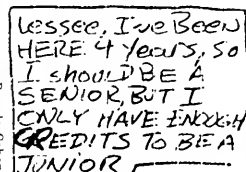 Lessee, I've BEEN
HERE 4 Years, So
I shoulD BE A
SENIOR, BUT I
ONLY HAVE ENOUGH
CREDITS TO BE A
JUNIOR